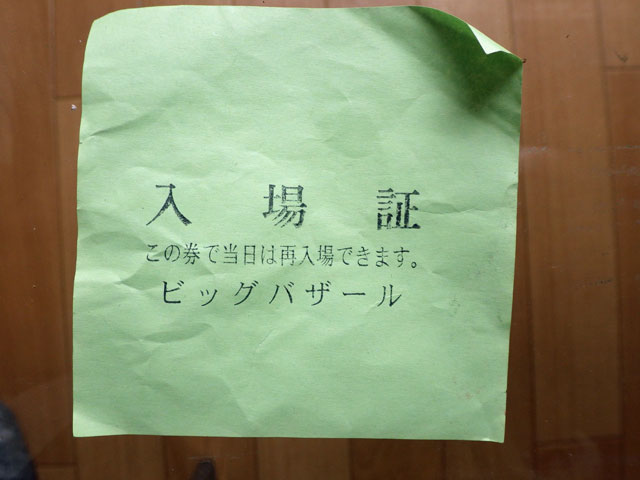 入場証
この券で当日は再入場できます。
ビッグバザール